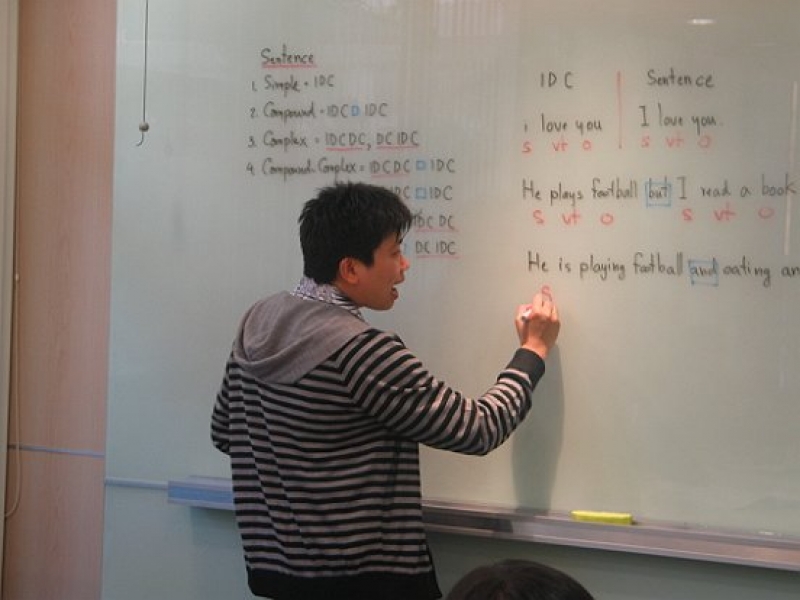 Sentence
1. Simple = IDC
2. Compound = IDC □ IDC
3. Complex = IDC DC, DC IDC
4. Compound-Complex = IDC DC □ IDC
IDC □ IDC
IDC DC
DC IDC
IDC | Sentence
i love you | I love you.
S vt O | S vt O
He plays football but I read a book
S vt O S vt O
He is playing football and eating an
S